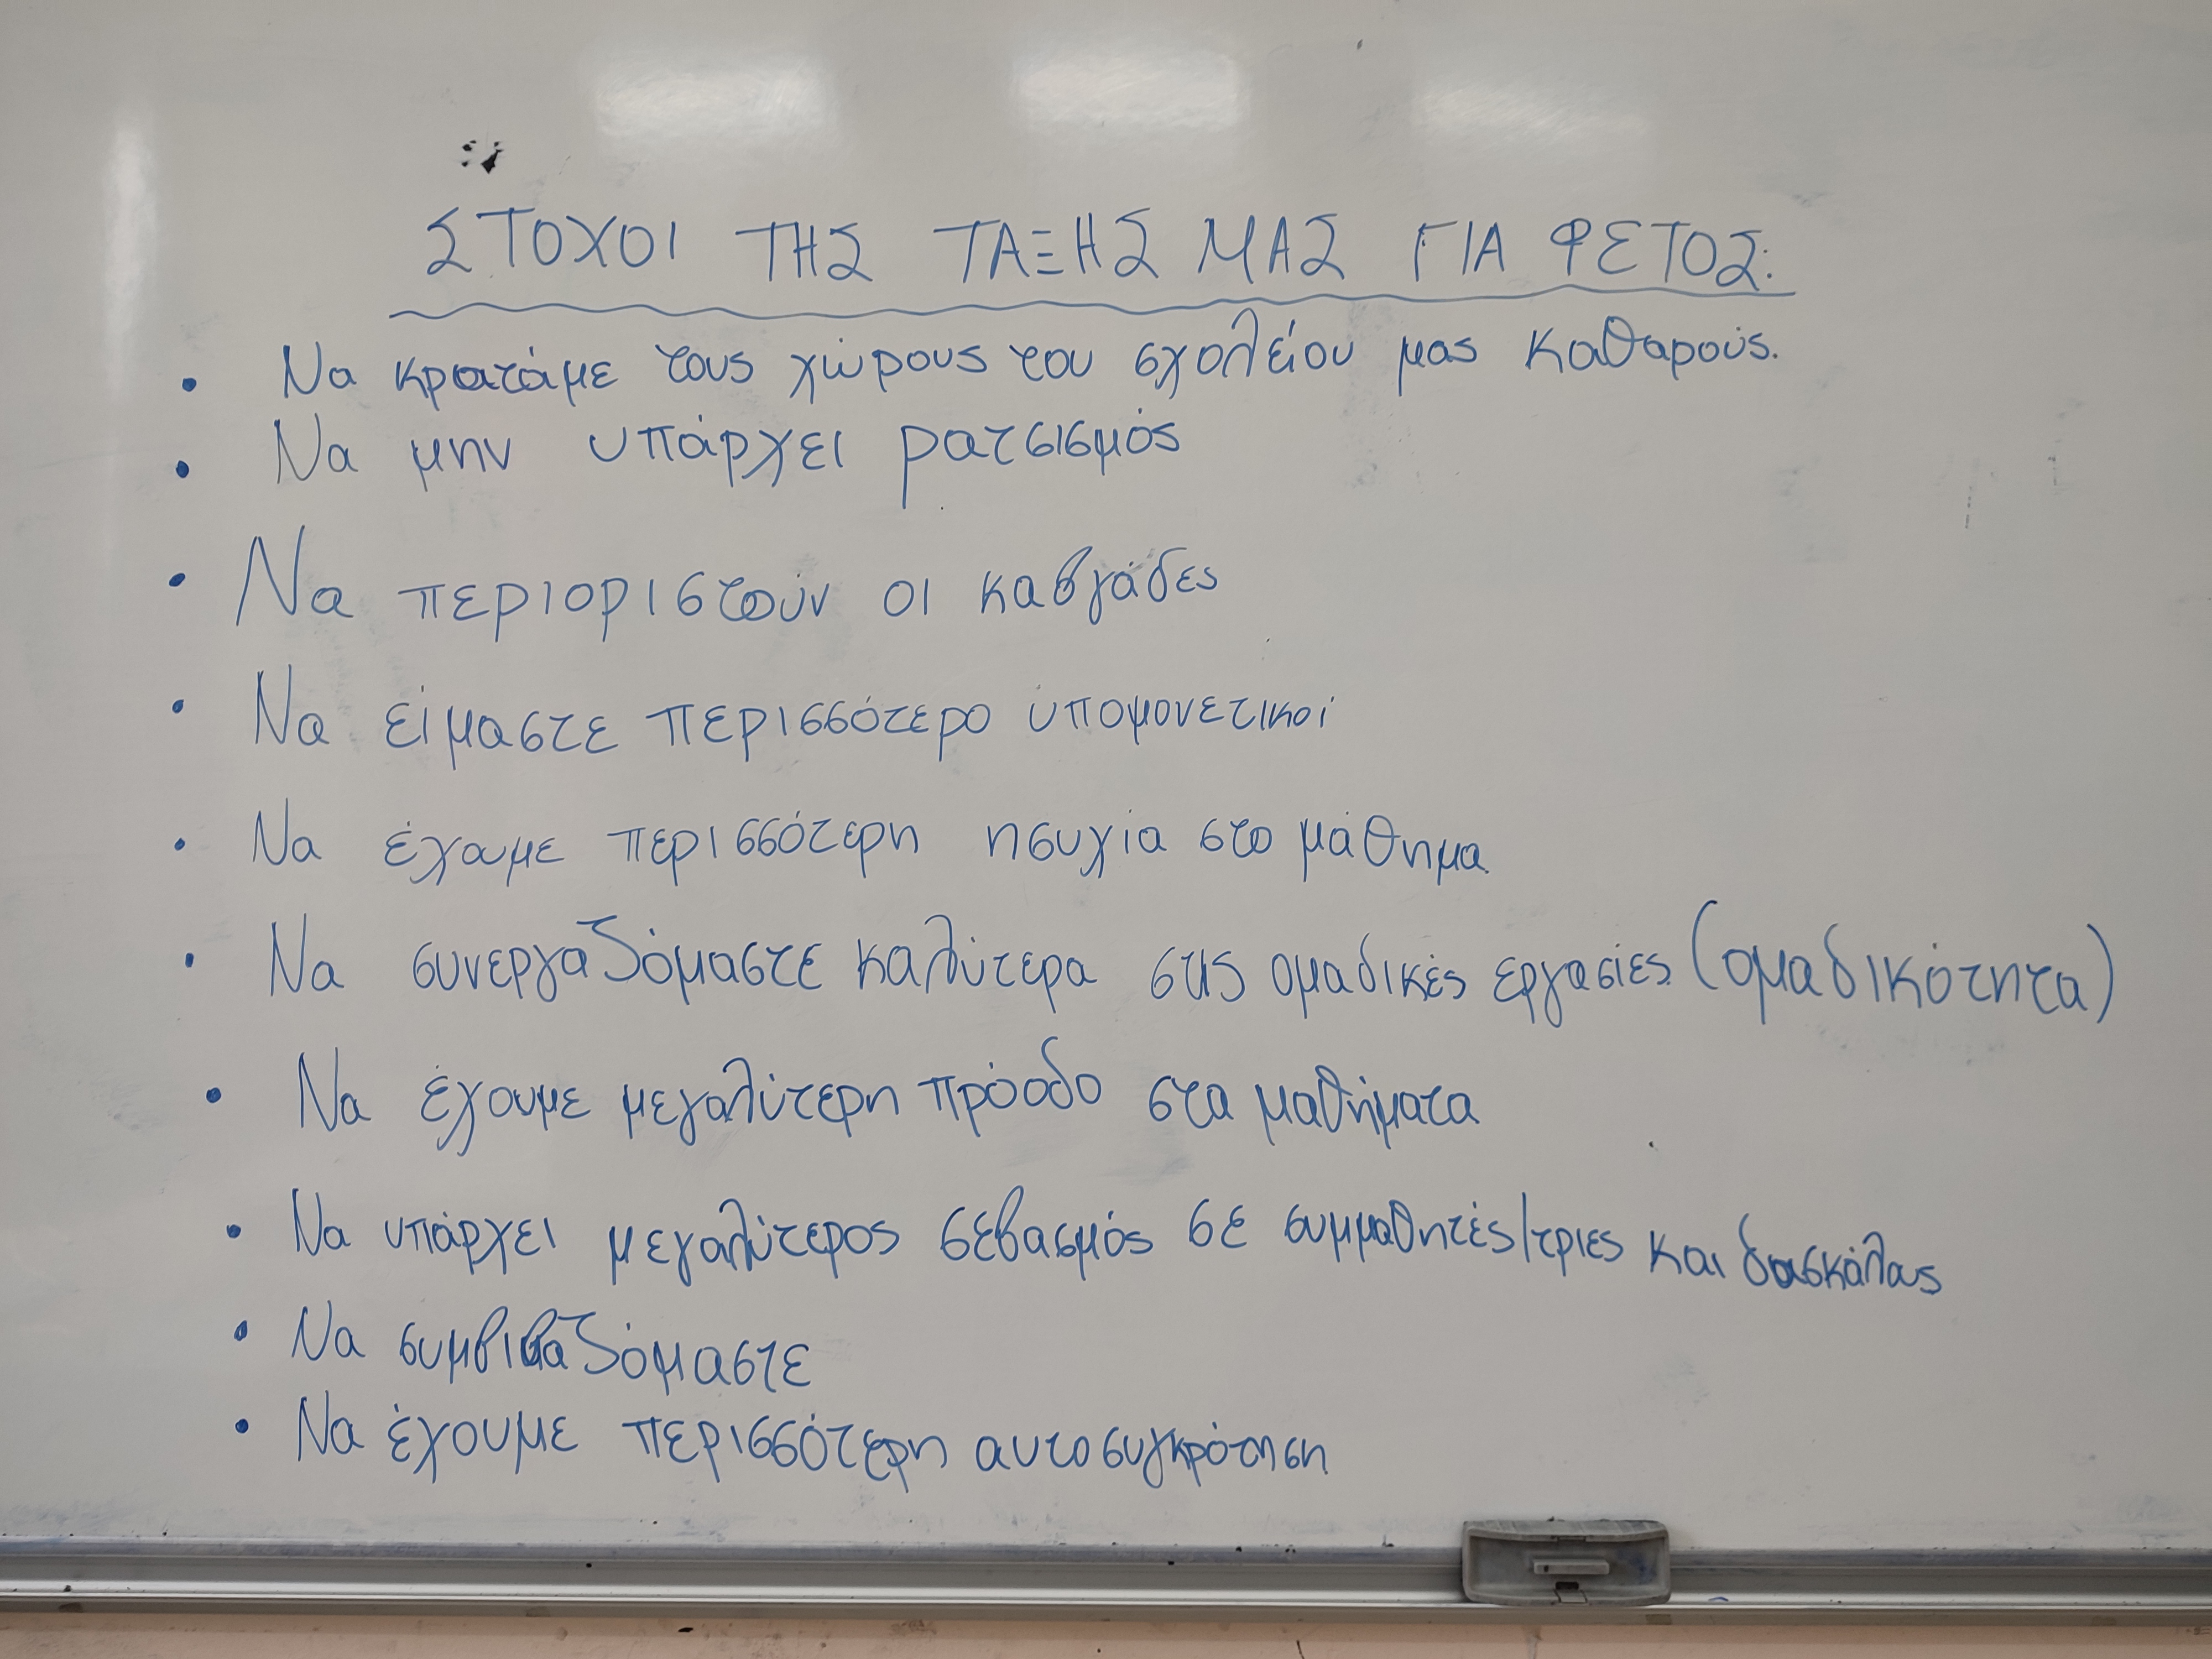 ΣΤΟΧΟΙ ΤΗΣ ΤΑΞΗΣ ΜΑΣ ΓΙΑ ΦΕΤΟΣ:
• Να κρατάμε τους χώρους του σχολείου μας καθαρούς.
• Να μην υπάρχει ρατσισμός
• Να περιοριστούν οι καβγάδες
• Να είμαστε περισσότερο υπομονετικοί
• Να έχουμε περισσότερη ησυχία στο μάθημα
• Να συνεργαζόμαστε καλύτερα στις ομαδικές εργασίες (ομαδικότητα)
• Να έχουμε μεγαλύτερη πρόοδο στα μαθήματα
• Να υπάρχει μεγαλύτερος σεβασμός σε συμμαθητές/τριες και δασκάλους
• Να συμβιβαζόμαστε
• Να έχουμε περισσότερη αυτοσυγκρότηση